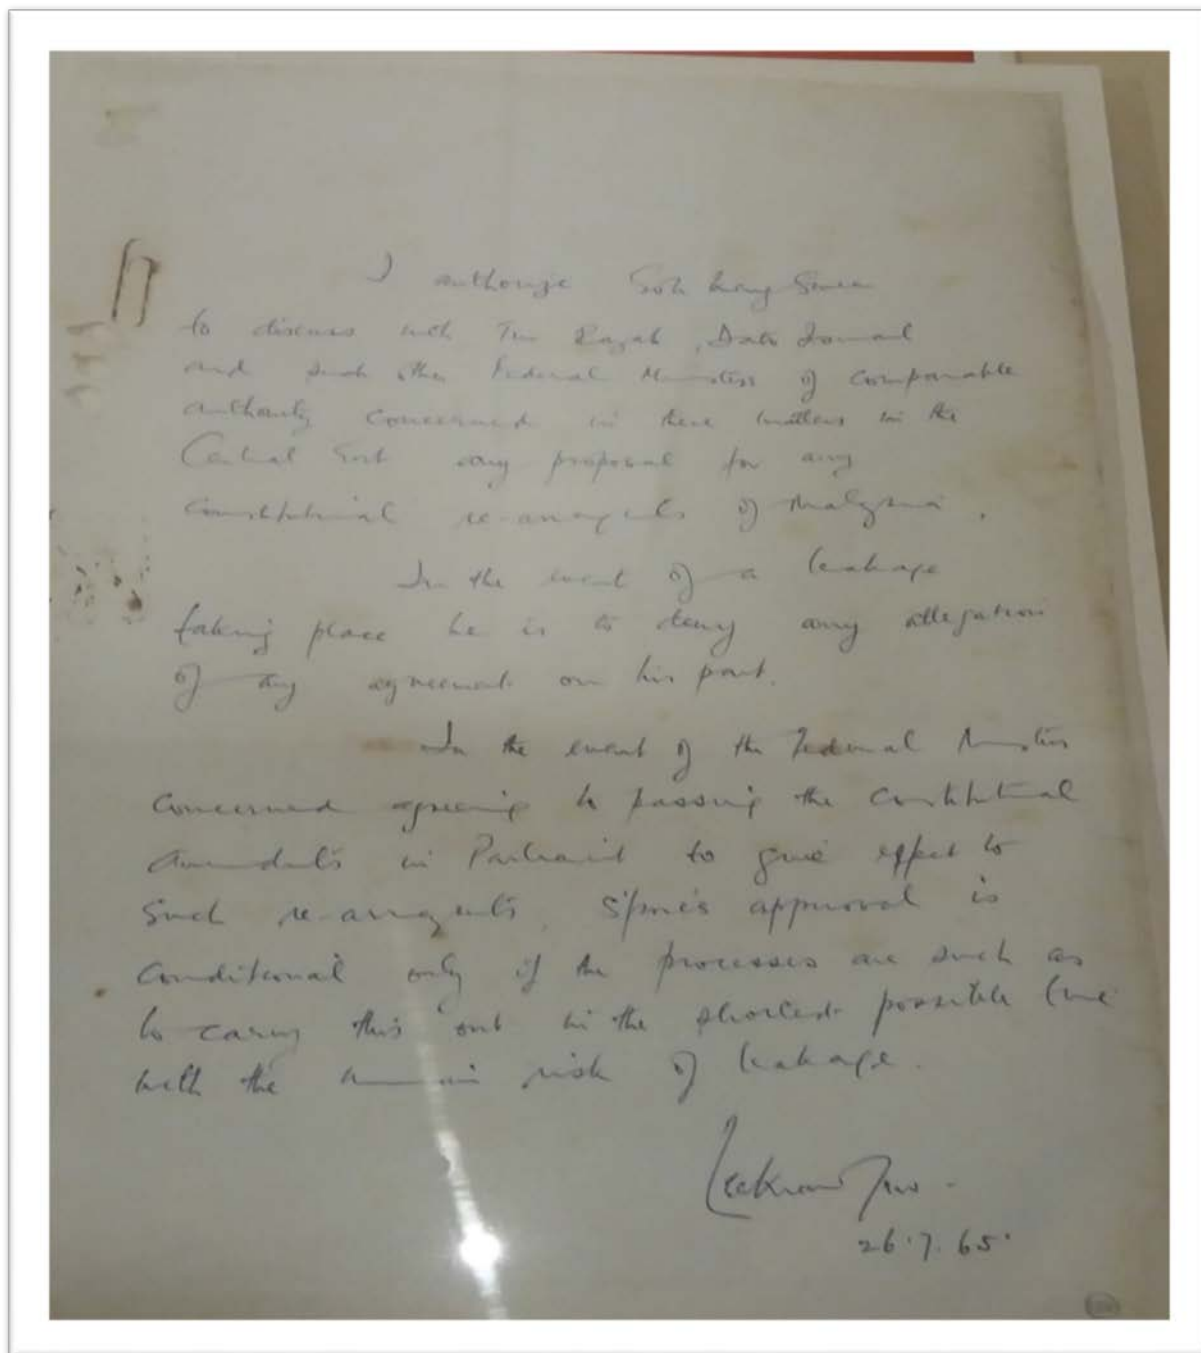 I authorize Goh Keng Swee
to discuss with Tun Razak, Dato Ismail
and such other Federal Ministers of comparable
authority concerned in these matters in the
Central Govt any proposal for any
constitutional re-arrangements of Malaysia.
In the event of a leakage
taking place he is to deny any allegation
of any agreement on his part.
In the event of the Federal Ministers
concerned agreeing to passing the constitutional
amendments in Parliament to give effect to
such re-arrangements, S'pore's approval is
conditional only if the processes are such as
to carry this out in the shortest possible time
with the risk of leakage.
Lee Kuan Yew.
26.7.65.